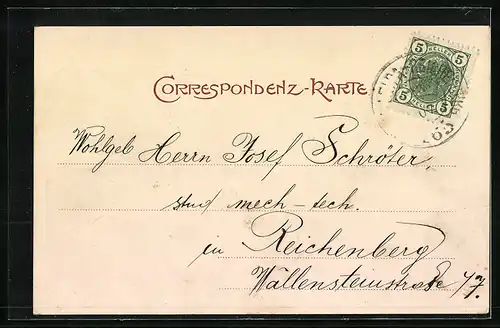 5 5
HELLER
5 5
CORRESPONDENZ-KARTE
Wohlgeb Herrn Josef Schröter,
stud mech-tech.
in Reichenberg
Wallensteinstraße 17.